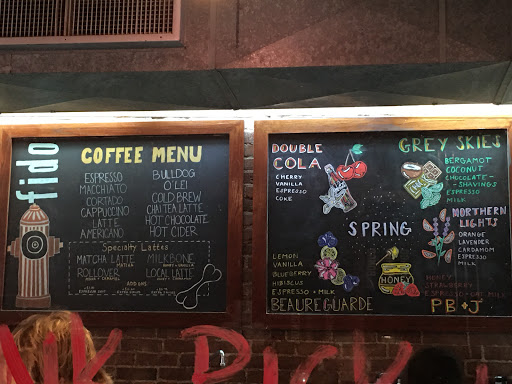 fido
COFFEE MENU
ESPRESSO
MACCHIATO
CORTADO
CAPPUCCINO
LATTE
AMERICANO
BULLDOG
O'LEI
COLD BREW
CHAI TEA LATTE
HOT CHOCOLATE
HOT CIDER
Specialty Lattes
MATCHA LATTE
MATCHA
ROLLOVER
MILKBONE
LOCAL LATTE
ADD ONS
DOUBLE
COLA
CHERRY
VANILLA
ESPRESSO
COKE
SPRING
LEMON
VANILLA
BLUEBERRY
HIBISCUS
ESPRESSO + MILK
BEAUREGUARDE
GREY SKIES
BERGAMOT
COCONUT
CHOCOLATE-
-SHAVINGS
ESPRESSO
MILK
NORTHERN
LIGHTS
ORANGE
LAVENDER
CARDAMOM
ESPRESSO
MILK
HONEY
HONEY
STRAWBERRY
PB+J